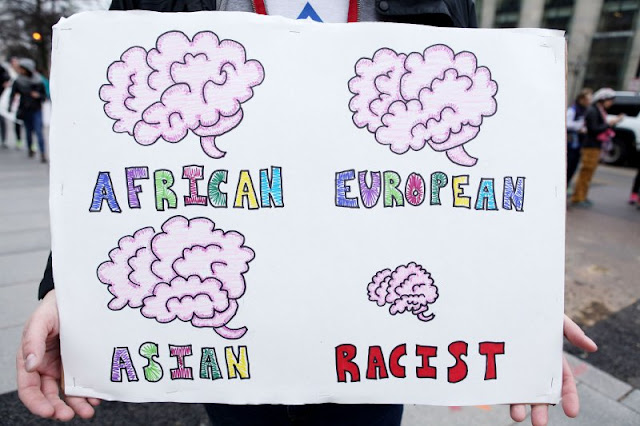 AFRICAN
EUROPEAN
ASIAN
RACIST